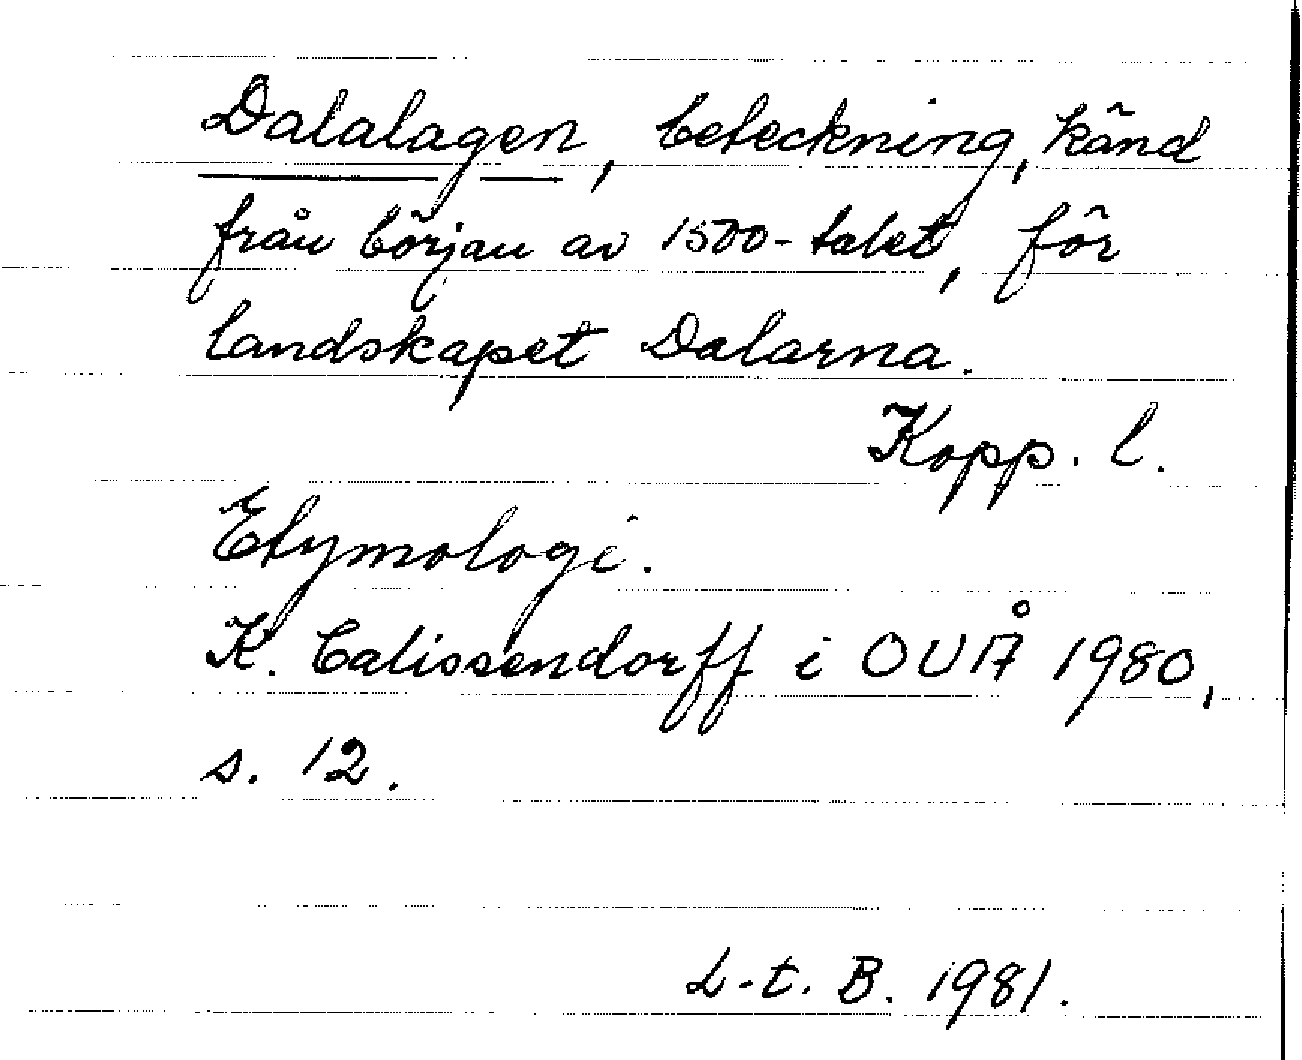 Dalalagen, beteckning, känd
från början av 1500-talet, för
landskapet Dalarna.
Kopp. l.
Etymologi.
K. Calissendorff i OUÅ 1980,
s. 12.
L-t. B. 1981.